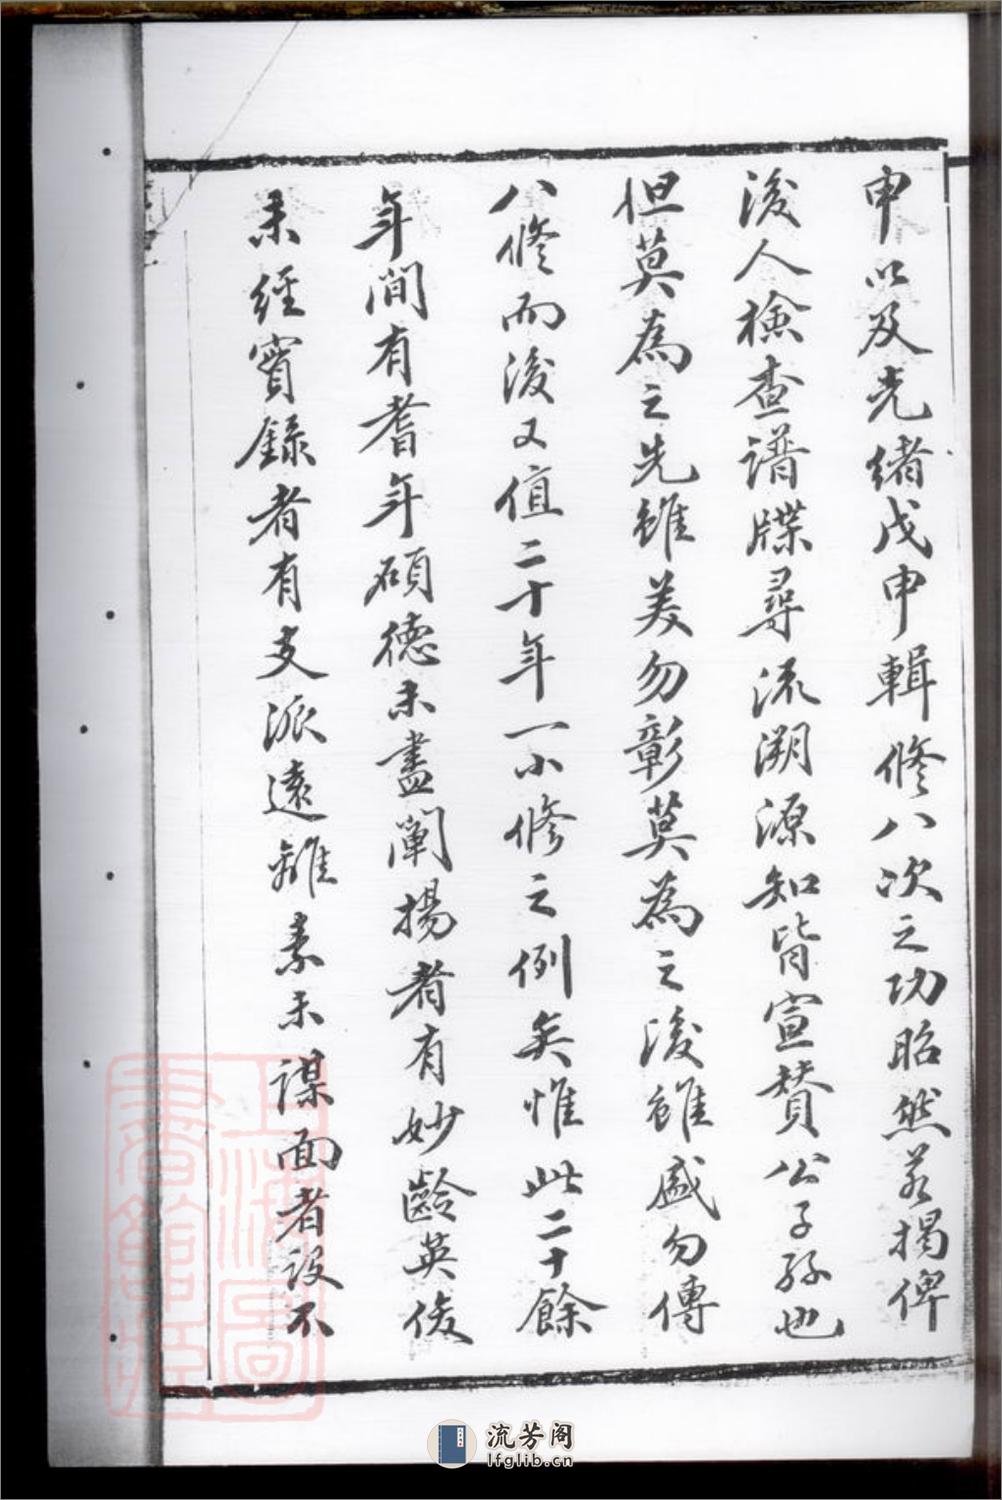 申以及光緒戊申輯修八次之功昭然若揭俾
後人檢查譜牒尋流溯源知皆宣贊公子孫也
但莫為之先雖美勿彰莫為之後雖盛勿傳
八修而後又值二十年一小修之例矣惟此二十餘
年間有耆年碩德未盡闡揚者有妙齡英俊
未經實錄者有支派遠離素未謀面者設不
上海圖書館藏
流芳阁
lfglib.cn